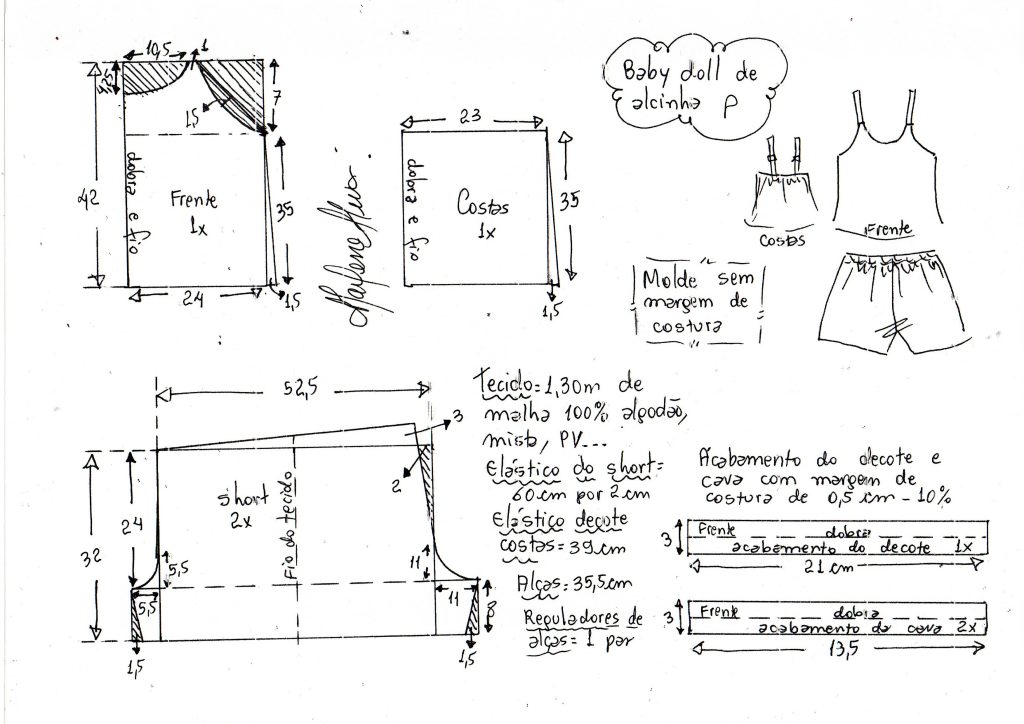 10,5
1
3,5
7
1,5
42
dobra e fio
Frente
1x
35
24
1,5
Marlene
23
dobra e fio
Costas
1x
35
1,5
Baby doll de
alcinha P
Costas
Frente
Molde sem
margem de
costura
52,5
3
2
short
2x
Fio do tecido
24
32
5,5
5,5
1,5
11
11
8
1,5
Tecido=1,30m de
malha 100% algodão,
mista, PV...
Elástico do short=
60cm por 2cm
Elástico decote
costas=39cm
Alças=35,5cm
Reguladores de
alças=1 par
Acabamento do decote e
cava com margem de
costura de 0,5 cm - 10%
3
Frente dobra
acabamento do decote 1x
21 cm
3
Frente dobra
acabamento da cava 2x
13,5